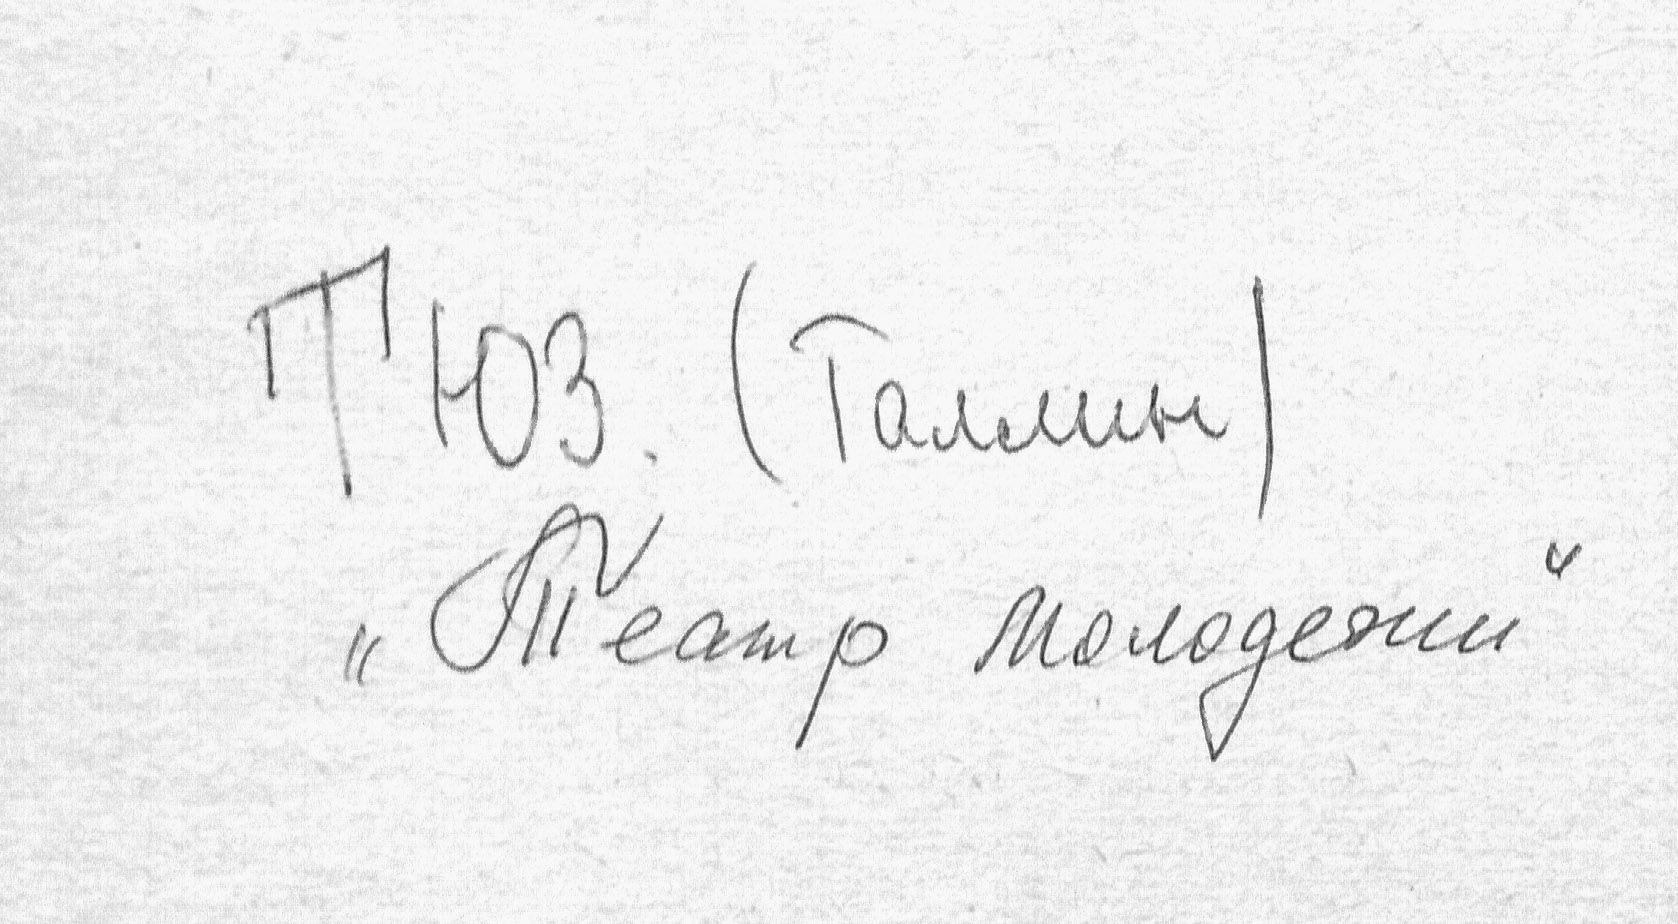 ТЮЗ. (Таллин)
„Театр Молодежи“